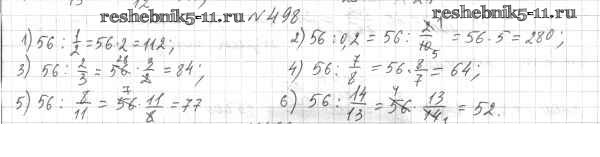 reshebnik5-11.ru №498 reshebnik5-11.ru
1) 56 : 1/2 = 56 · 2 = 112; 2) 56 : 0,2 = 56 : 2/10 = 56 · 5 = 280;
3) 56 : 2/3 = 56 · 3/2 = 84; 4) 56 : 7/8 = 56 · 8/7 = 64;
5) 56 : 8/11 = 56 · 11/8 = 77 6) 56 : 14/13 = 56 · 13/14 = 52.